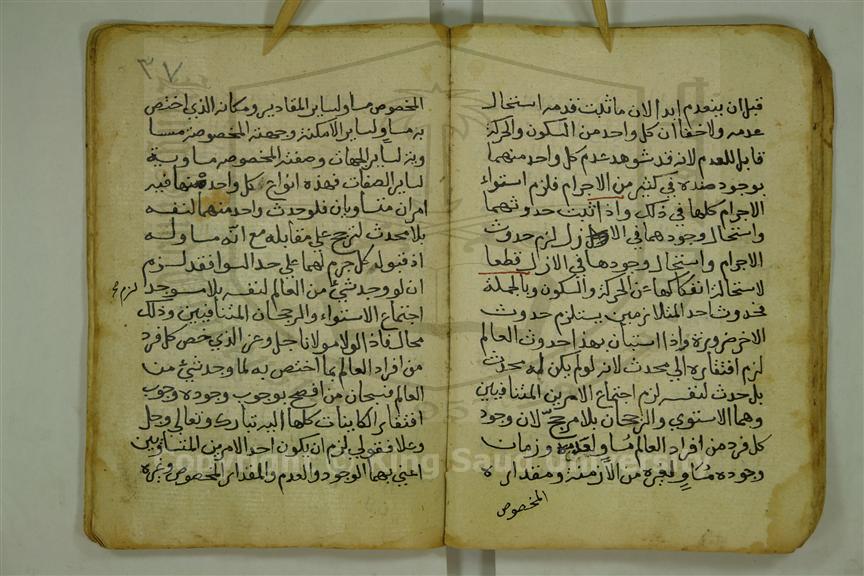 قبل ان ينعدم ابدا لان ما ثبت قدمه استحال
عدمه ولا خفا ان كل واحد من السكون والحركة
قابل للعدم لانه قد شوهد عدم كل واحد منهما
بوجود ضده في كثير من الاجرام فلزم استواء
الاجرام كلها في ذلك واذا ثبت حدوثهما
واستحال وجودهما في الازل لزم حدوث
الاجرام واستحال وجودها في الازل قطعا
لاستحالة انفكاكها عن الحركة والسكون وبالجملة
فحدوث احد المتلازمين يستلزم حدوث
الاخر ضرورة واذا استبان بهذا حدوث العالم
لزم افتقاره الي محدث لانه لو لم يكن له محدث
بل حدث لنفسه لزم اجتماع الامرين المتنافيين
وهما الاستوي والرجحان بلا مرجح لان وجود
كل فرد من افراد العالم مساو لعدمه وزمان
وجوده مساو لغيره من الازمنة ومقداره
المخصوص
٣٧
المخصوص مساو لساير المقادير ومكانه الذي اختص
به مساو لساير الامكنة وجهته المخصوصة مسا
وية لساير الجهات وصفته المخصوصه مساوية
لساير الصفات فهذه انواع كل واحد منها فيه
امران متساويان فلو حدث واحد منهما لنفسه
بلا محدث لترجح علي مقابله مع انه مساو له
اذ قبول كل جرم لهما علي حد السوا فقد لزم
ان لو وجد شئ من العالم لنفسه بلا موجد لزم
اجتماع الاستواء والرجحان المتنافيين وذلك
محال فاذا لولا مولانا جل وعز الذي خص كل فرد
من افراد العالم بما اختص به لما وجد شئ من
العالم فسبحان من افصح بوجوب وجوده وجوب
افتقار الكاينات كلها اليه تبارك وتعالي وجل
وعلا فقولي لزم ان يكون احد الامرين المتساويين
اعني بهما الوجود والعدم والمقدار المخصوص وغيره